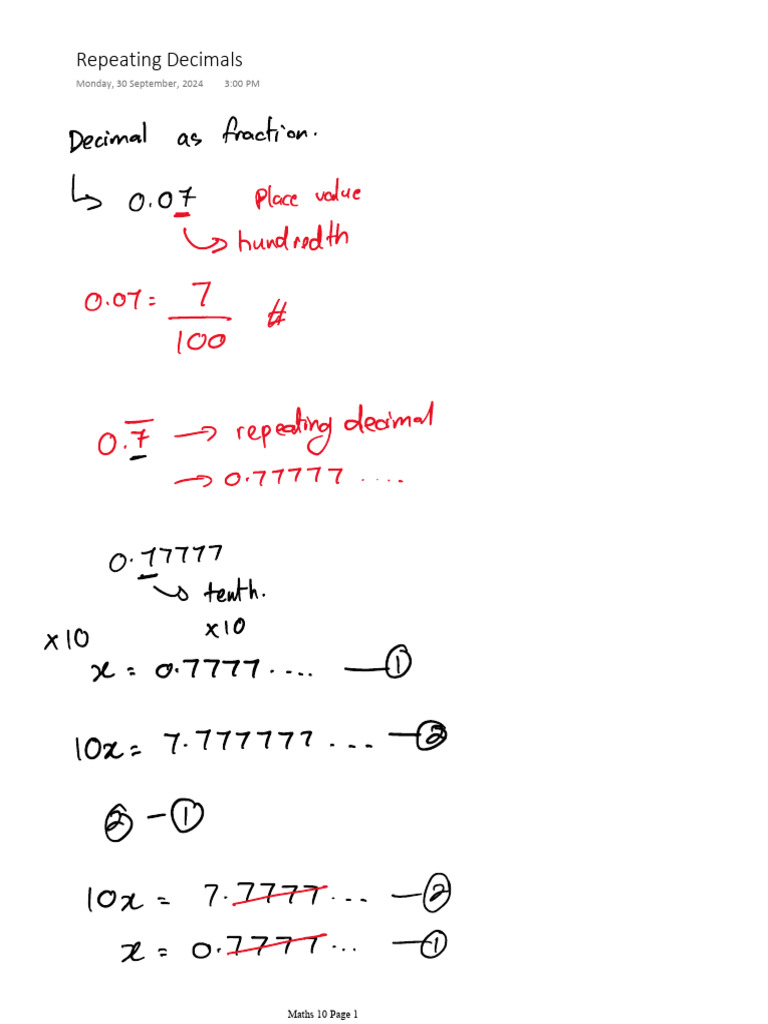 Repeating Decimals
Monday, 30 September, 2024 3:00 PM
Decimal as fraction.
↳ 0.07 Place value
↳ hundredth
0.07 = 7/100 #
0.7̅ → repeating decimal
→ 0.77777 ....
0.77777
↳ tenth.
×10 ×10
x = 0.7777.... —①
10x = 7.777777 ... —②
② - ①
10x = 7.7777... —②
x = 0.7777... —①
Maths 10 Page 1